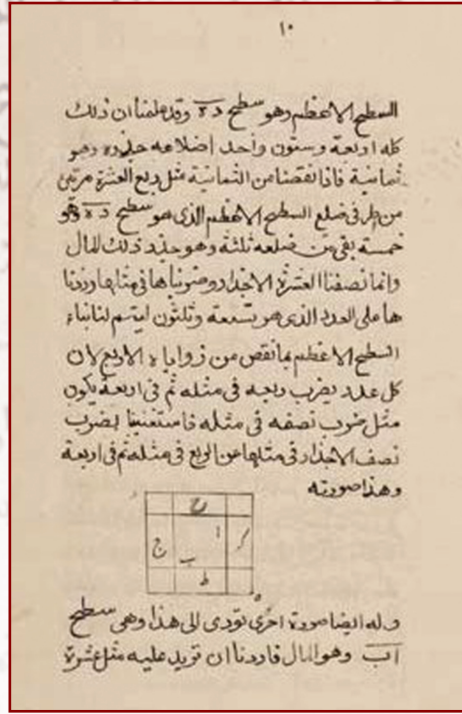 ١٠
السطح الاعظم وهو سطح ده وقد علمنا ان ذلك
كله اربعة وستون واحد اضلاعه جذره وهو
ثمانية فاذا نقصنا من الثمانية مثل ربع العشرة مرتين
من طرفى ضلع السطح الاعظم الذى هو سطح ده وهو
خمسة بقى من ضلعه ثلثة وهو جذر ذلك المال
وانما نصفنا العشرة الاجذار وضربناها فى مثلها وزدنا
ها على العدد الذى هو تسعة وثلثون ليتم لنا بناء
السطح الاعظم بما نقص من زواياه الاربع لان
كل عدد يضرب ربعه فى مثله ثم فى اربعة يكون
مثل ضرب نصفه فى مثله فاستغنينا بضرب
نصف الاجذار فى مثلها عن الربع فى مثله ثم فى اربعة
وهذا صورته
ح
ا
ج
ب
ك
ط
ه
وله ايضا صورة اخرى تودى الى هذا وهى سطح
اب وهو المال فاردنا ان نزيد عليه مثل عشرة